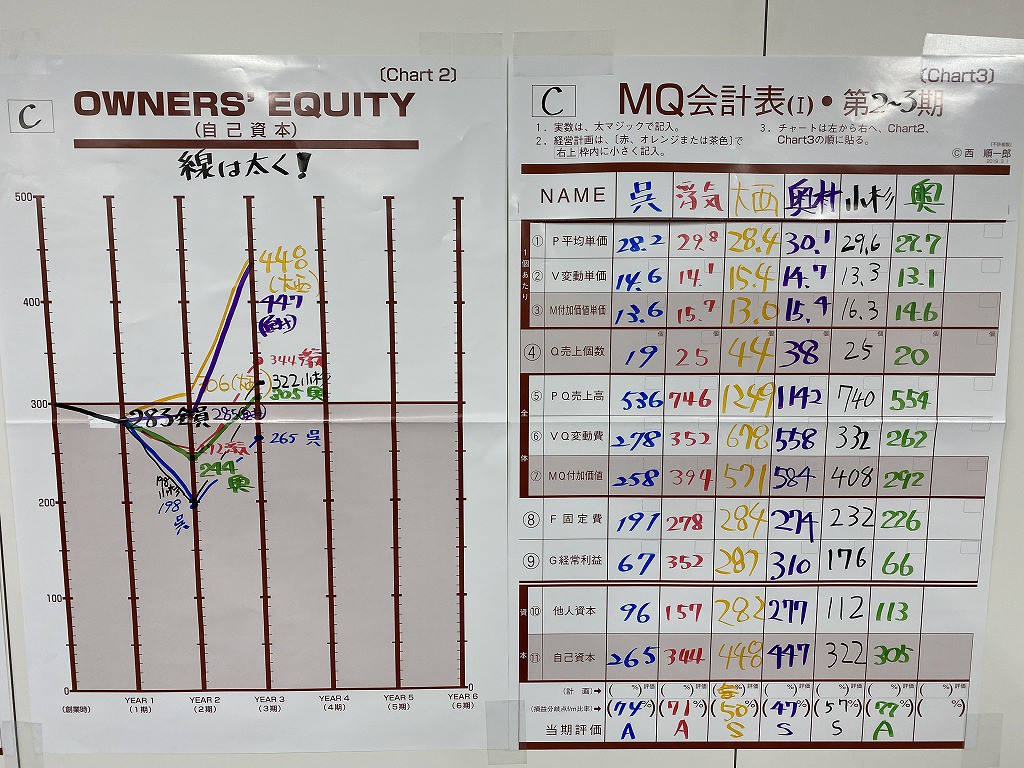 (Chart 2)
C
OWNERS' EQUITY
(自己資本)
線は太く!
500
400
300
200
100
0
0
448
(大西)
447
344 浮気
322 小杉
305 奥
306(大西)
283全員
265 呉
244
奥
198
小杉
198
呉
(創業時)
YEAR 1
(1期)
YEAR 2
(2期)
YEAR 3
(3期)
YEAR 4
(4期)
YEAR 5
(5期)
YEAR 6
(6期)
(Chart3)
C
MQ会計表(I)・第2~3期
1. 実数は、太マジックで記入。
2. 経営計画は、(赤、オレンジまたは茶色)で
右上 枠内に小さく記入。
3. チャートは左から右へ、Chart2、
Chart3の順に貼る。
©西 順一郎
NAME 呉 浮気 大西 奥村 小杉 奥
1個あたり
① P平均単価 28.2 29.8 28.4 30.1 29.6 27.7
② V変動単価 14.6 14.1 15.4 14.7 13.3 13.1
③ M付加価値単価 13.6 15.7 13.0 15.4 16.3 14.6
④ Q売上個数 19 25 44 38 25 20
個 個 個 個 個 個 個
全体
⑤ PQ売上高 536 746 1249 1142 740 554
⑥ VQ変動費 278 352 678 558 332 262
⑦ MQ付加価値 258 394 571 584 408 292
⑧ F固定費 191 278 284 274 232 226
⑨ G経常利益 67 352 287 310 176 66
資本
⑩ 他人資本 96 157 282 277 112 113
⑪ 自己資本 265 344 448 447 322 305
(計 画)→ ( %)評価 ( %)評価 ( %)評価 ( %)評価 ( %)評価 ( %)評価 ( %)評価
(損益分岐点f/m比率)→ (74%) (71%) (50%) (47%) (57%) (77%) ( %)
当期評価 A A S S S A